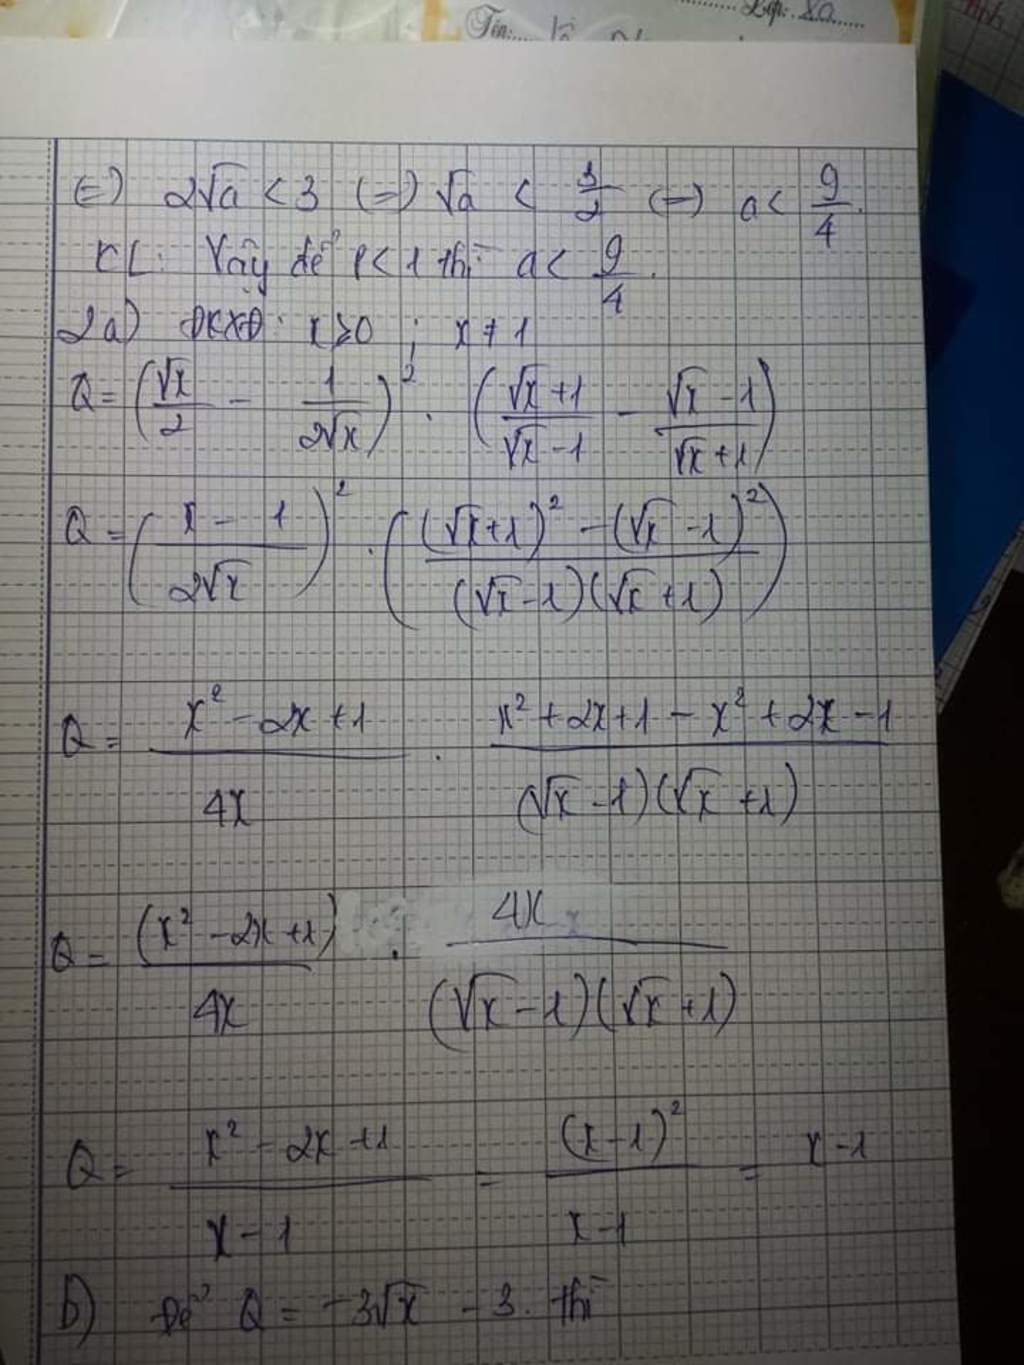 Lớp: 8a
Tên:
(=) 2√a < 3 (=) √a < 3/2 (=) a < 9/4.
KL: Vậy để P < 1 thì a < 9/4.
2a) ĐKXĐ: x>0 ; x ≠ 1
Q = (√x/2 - 1/2√x)² . (√x+1/√x-1 - √x-1/√x+1)
Q = (x-1/2√x)² . ((√x+1)² - (√x-1)²/(√x-1)(√x+1))
Q = x² - 2x + 1/4x . x² + 2x + 1 - x² + 2x - 1/(√x-1)(√x+1)
Q = (x² - 2x + 1)/4x . 4x/(√x-1)(√x+1)
Q = x² - 2x + 1/x - 1 = (x-1)²/x-1 = x-1
b) Để Q = -3√x - 3. thì